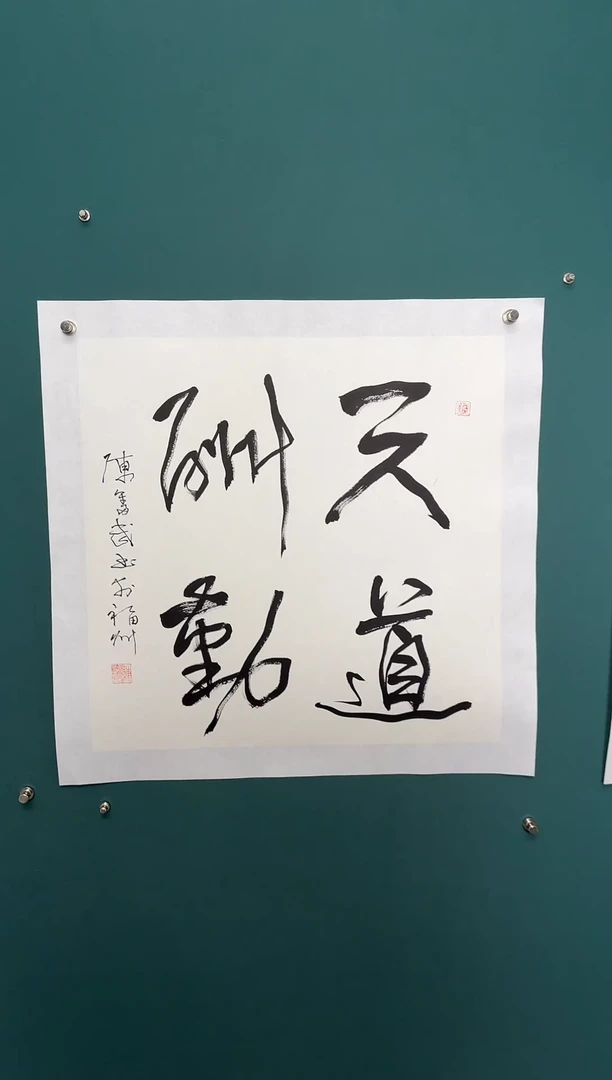 天道
酬勤
陳奮武书於福州